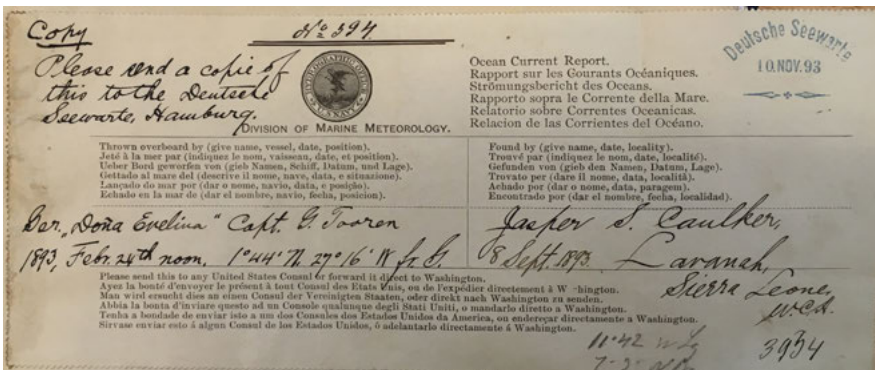 Copy
No 394
Please send a copie of
this to the Deutsche
Seewarte, Hamburg.
HYDROGRAPHIC OFFICE
U.S. NAVY
DIVISION OF MARINE METEOROLOGY.
Ocean Current Report.
Rapport sur les Gourants Océaniques.
Strömungsbericht des Oceans.
Rapporto sopra le Corrente della Mare.
Relatorio sobre Correntes Oceanicas.
Relacion de las Corrientes del Océano.
Deutsche Seewarte
10.NOV.93
Thrown overboard by (give name, vessel, date, position).
Jeté à la mer par (indiquez le nom, vaisseau, date, et position).
Ueber Bord geworfen von (gieb den Namen, Schiff, Datum, und Lage).
Gettado al mare del (descrive il nome, nave, data, e situazione).
Lançado do mar por (dar o nome, navio, data, e posição).
Echado en la mar de (dar el nombre, navio, fecha, posicion).
Found by (give name, date, locality).
Trouvé par (indiquez nom, date, localité).
Gefunden von (gieb den Namen, Datum, Lage).
Trovato per (dare il nome, data, località).
Achado por (dar o nome, data, paragem).
Encontrado por (dar el nombre, fecha, localidad).
Ger. „Doña Evelina" Capt. G. Tooren
1893, Feb. 24th noon. 1°44' N. 27°16' W fr. G.
Jasper S. Caulker,
8 Sept. 1893. Lavanah,
Sierra Leone,
W.C.A.
Please send this to any United States Consul or forward it direct to Washington.
Ayez la bonté d'envoyer le présent à tout Consul des Etats Unis, ou de l'expédier directement à W hington.
Man wird ersucht dies an einen Consul der Vereinigten Staaten, oder direkt nach Washington zu senden.
Abbia la bonta d'inviare questo ad un Console qualunque degli Stati Uniti, o mandarlo diretto a Washington.
Tenha a bondade de enviar isto a um dos Consules dos Estados Unidos da America, ou endereçar directamente a Washington.
Sirvase enviar esto á algun Consul de los Estados Unidos, ò adelantarlo directamente á Washington.
11·42
3934